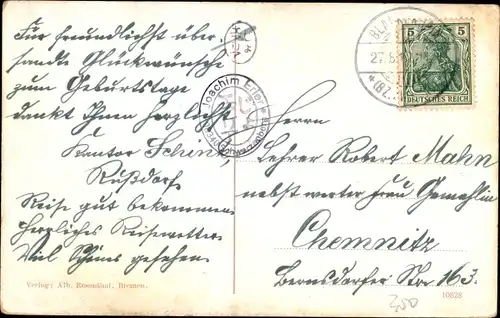 Für freundlichst über-
sandte Glückwünsche
zum Geburtstage
dankt Ihnen herzlichst
Kantor
Rußdorf.
Reise gut bekommen.
Herrliches Reisewetter.
Viel Schönes gesehen.
Verlag: Alb. Rosenthal, Bremen.
Joachim Erler
5 5
DEUTSCHES REICH
27.8.
Herrn
Lehrer Robert Mahn
nebst werter Frau Gemahlin
Chemnitz
Bernsdorfer Str. 163.
10828
350